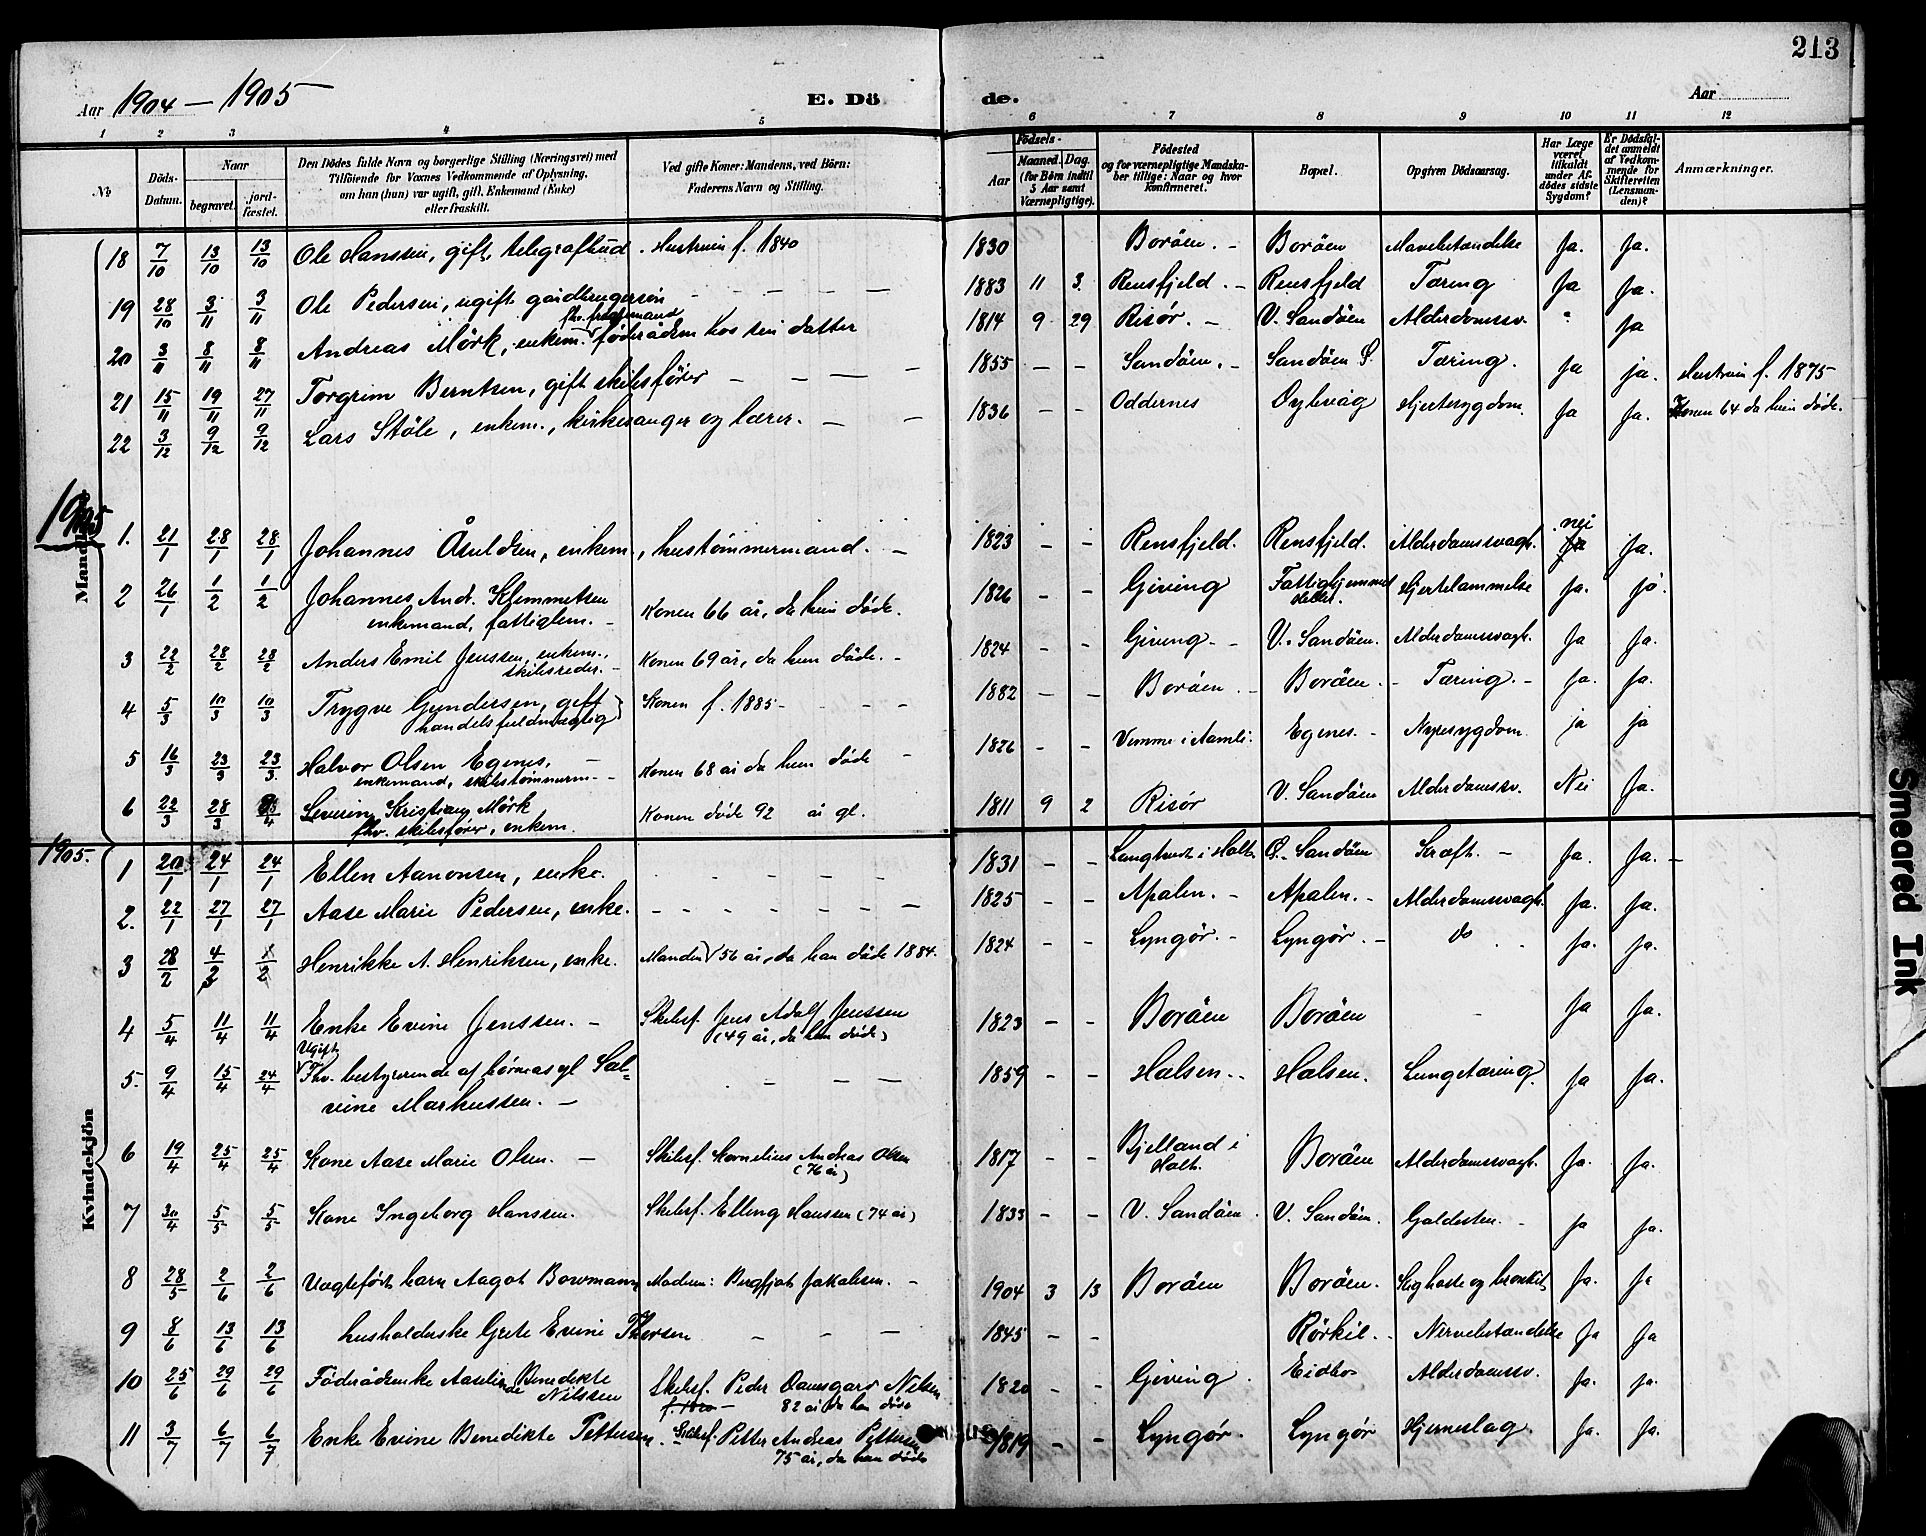 213
Aar 1904 – 1905
E. Dö
de.
Aar
1 2 3 4 5 6 7 8 9 10 11 12
No
Döds-Datum.
Naar
begravet.
jordfæstet.
Den Dödes fulde Navn og borgerlige Stilling (Næringsvei) med
Tilföiende for Voxnes Vedkommende af Oplysning,
om han (hun) var ugift, gift, Enkemand (Enke)
eller fraskilt.
Ved gifte Koner: Mandens, ved Börn:
Faderens Navn og Stilling.
Födsels-
Aar
Maaned. Dag.
(for Börn indtil 5 Aar samt Værnepligtige).
Födested
og for værnepligtige Mandskaber tillige: Naar og hvor konfirmeret.
Bopæl.
Opgiven Dödsaarsag.
Har Læge været tilkaldt under Afdödes sidste Sygdom?
Er Dödsfaldet anmeldt af Vedkommende for Skifteretten (Lensmanden)?
Anmærkninger.
18 7/10 13/10 13/10 Ole Hanssen, gift, telegrafbud. Hustruen f. 1840 1830 Boröen. – Boröen Mavebetændelse Ja. Ja.
19 28/10 3/11 3/11 Ole Pedersen, ugift, gårdbrugersön 1883 11 3. Rensfjeld. – Rensfjeld Tæring Ja Ja.
20 3/11 8/11 8/11 Andreas Mörk, enkem. föderådsm hos sin datter 1814 9 29 Risör. – V. Sandöen Alderdomssv. " Ja
21 15/11 19/11 27/11 Torgrim Berntsen, gift skibsförer 1855 – – Sandöen. – Sandöen S. Tæring. Ja ja. Hustruen f. 1875
22 3/12 9/12 9/12 Lars Stöle, enkem., kirkesanger og lærer. 1836 – – Oddernes Dybvåg Hjertesygdom. Ja Ja. Konen 64 da hun döde.
1905
Mandkjön
1. 21/1 28/1 28/1 Johannes Åsuldsen, enkem., hustömmermand. – 1823 – – Rensfjeld. Rensfjeld. Alderdomssvagh. nei Ja.
2 26/1 1/2 1/2 Johannes Andr. Klemmetsen
enkemand, fattiglem. – Konen 66 år, da hun döde. 1826 – – Giving Fattighjemmet Hjertelammelse Ja. ja.
3 22/2 28/2 28/2 Anders Emil Jenssen, enkem.,
skibsreder. – Konen 69 år, da hun döde. – 1824 – – Giving. – V. Sandöen. Alderdomssvagh. Ja Ja.
4 5/3 10/3 10/3 Trygve Gundersen, gift
handelsfuldmægtig Konen f. 1885 – 1882 – – Boröen. – Boröen. – Tæring. – Ja. Ja.
5 16/3 23/3 23/3. Halvor Olsen Egenes,
enkemand, skibstömmerm. – Konen 68 år da hun döde – 1826 – – Vimme i Aamli. Egenes. – Nyresygdom. ja ja
6 22/3 28/3 Severin Kristian Mörk
fhv. skibsförer, enkem. Konen döde 92 år gl. 1811 9 2 Risör V. Sandöen Alderdomssv. Nei Ja.
1905.
Kvindekjön
1 20/1 24/1 24/1 Ellen Aanonsen, enke. 1831 – – i Holt. Ö. Sandöen Kræft. – Ja. Ja. –
2. 22/1 27/1 27/1 Aase Marie Pedersen, enke. 1825 – – Apalen. – Apalen. – Alderdomssvagh. Ja. Ja.
3 28/2 4/3 Henrikke A. Henriksen, enke. Manden 56 år, da han döde 1884. 1824 – – Lyngör. – Lyngör. – do Ja. Ja.
4 5/4 11/4 11/4 Enke Evine Jenssen. – Skibsf. Jens Adolf Jenssen
(49 år, da han döde) 1823 – – Boröen Boröen Ja Ja.
5. 9/4 15/4 24/4 Ugift
Fhv. bestyrerinde af börneasyl Sal-
vine Markussen. – 1859 – – Halsen. – Halsen. Lungetæring. Ja Ja.
6 19/4 25/4 25/4 Kone Aase Marie Olsen. – Skibsf. Kornelius Andreas Olsen
(76 år) 1817 – – Bjelland i
Holt. Boröen Alderdomssvagh. Ja. Ja.
7 30/4 5/5 5/5 Kone Ingeborg Hanssen. Skibsf. Elling Hanssen (74 år) 1833 – – V. Sandöen. V. Sandöen. Galdesten. – Ja Ja.
8 28/5 2/6 2/6 Uægtefödt barn Aagot Bowmann Modren: Bergfjot Jakobsen. – 1904 3 13 Boröen Boröen. Kighoste og bronkit. Ja. Ja
9 8/6 13/6 13/6 husholderske Grete Evine Thorsen 1845 – – Rörkil. – Nervebetændelse Ja Ja
10 25/6 29/6 29/6 Föderådsenke Aaselinde Benedikte
Nilssen Skibsf. Peder Damsgård Nilsen
f. 1820 – 82 år da han döde 1820 – – Giving. Eidbo Alderdomssv. Ja. Ja.
11 3/7 6/7 6/7 Enke Evine Benedikte Pettersen. Skibsf. Petter Andreas Pettersen
75 år, da han döde 1819 – – Lyngör. Lyngör Hjerneslag Ja. Ja.
Smeared Ink